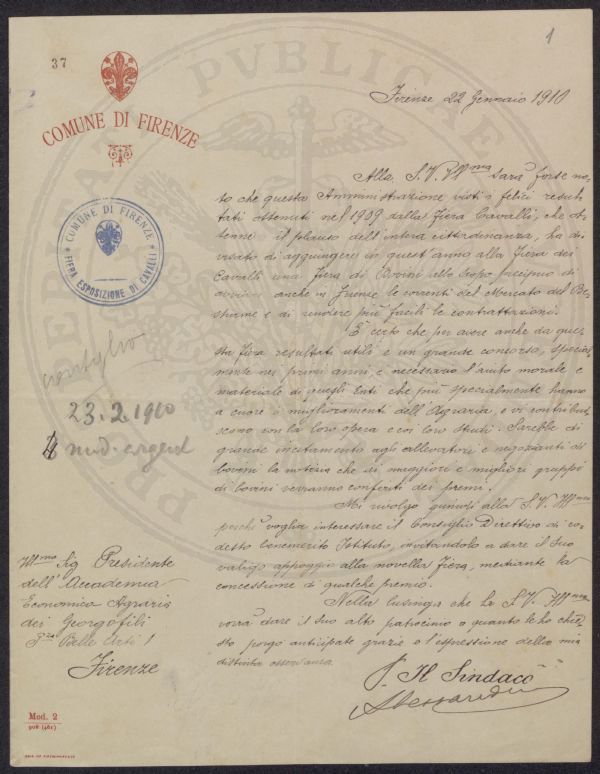 37
1
COMUNE DI FIRENZE
Firenze 22 Gennaio 1910
COMUNE DI FIRENZE
FIERA ESPOSIZIONE DI CAVALLI
Alla S. V. Ill.ma sarà forse no-
to che questa Amministrazione visti i felici resul-
tati ottenuti nel 1909 dalla Fiera Cavalli, che ot-
tenne il plauso dell'intera cittadinanza, ha di-
visato di aggiungere in quest'anno alla Fiera dei
Cavalli una Fiera di Bovini allo scopo precipuo di
anche in Firenze le correnti del Mercato del Be-
stiame e di rendere più facili le contrattazioni.
È certo che per avere anche da que-
sta fiera resultati utili e un grande concorso, special-
mente nei primi anni, è necessario l'aiuto morale e
materiale di quegli Enti che più specialmente hanno
a cuore i miglioramenti dell'Agraria, e vi contribui-
scono con la loro opera e coi loro studi. Sarebbe di
grande incitamento agli allevatori e negozianti di
bovini la notizia che ai maggiori e migliori gruppi
di bovini verranno conferiti dei premi.
Mi rivolgo quindi alla S. V. Ill.ma
perchè voglia interessare il Consiglio Direttivo di co-
desto benemerito Istituto, invitandolo a dare il suo
valido appoggio alla novella Fiera, mediante la
concessione di qualche premio.
Nella lusinga che la S. V. Ill.ma
vorrà dare il suo alto patrocinio a quanto le ho chie-
sto porgo anticipate grazie e l'espressione della mia
distinta osservanza
P. Il Sindaco
Consiglio
23.2.1910
med. argent
Ill.mo Sig Presidente
dell'Accademia
Economico Agraria
dei Georgofili
P.za Belle Arti 1
Firenze
Mod. 2
908 (461)
PROPRIETAS PUBLICAE